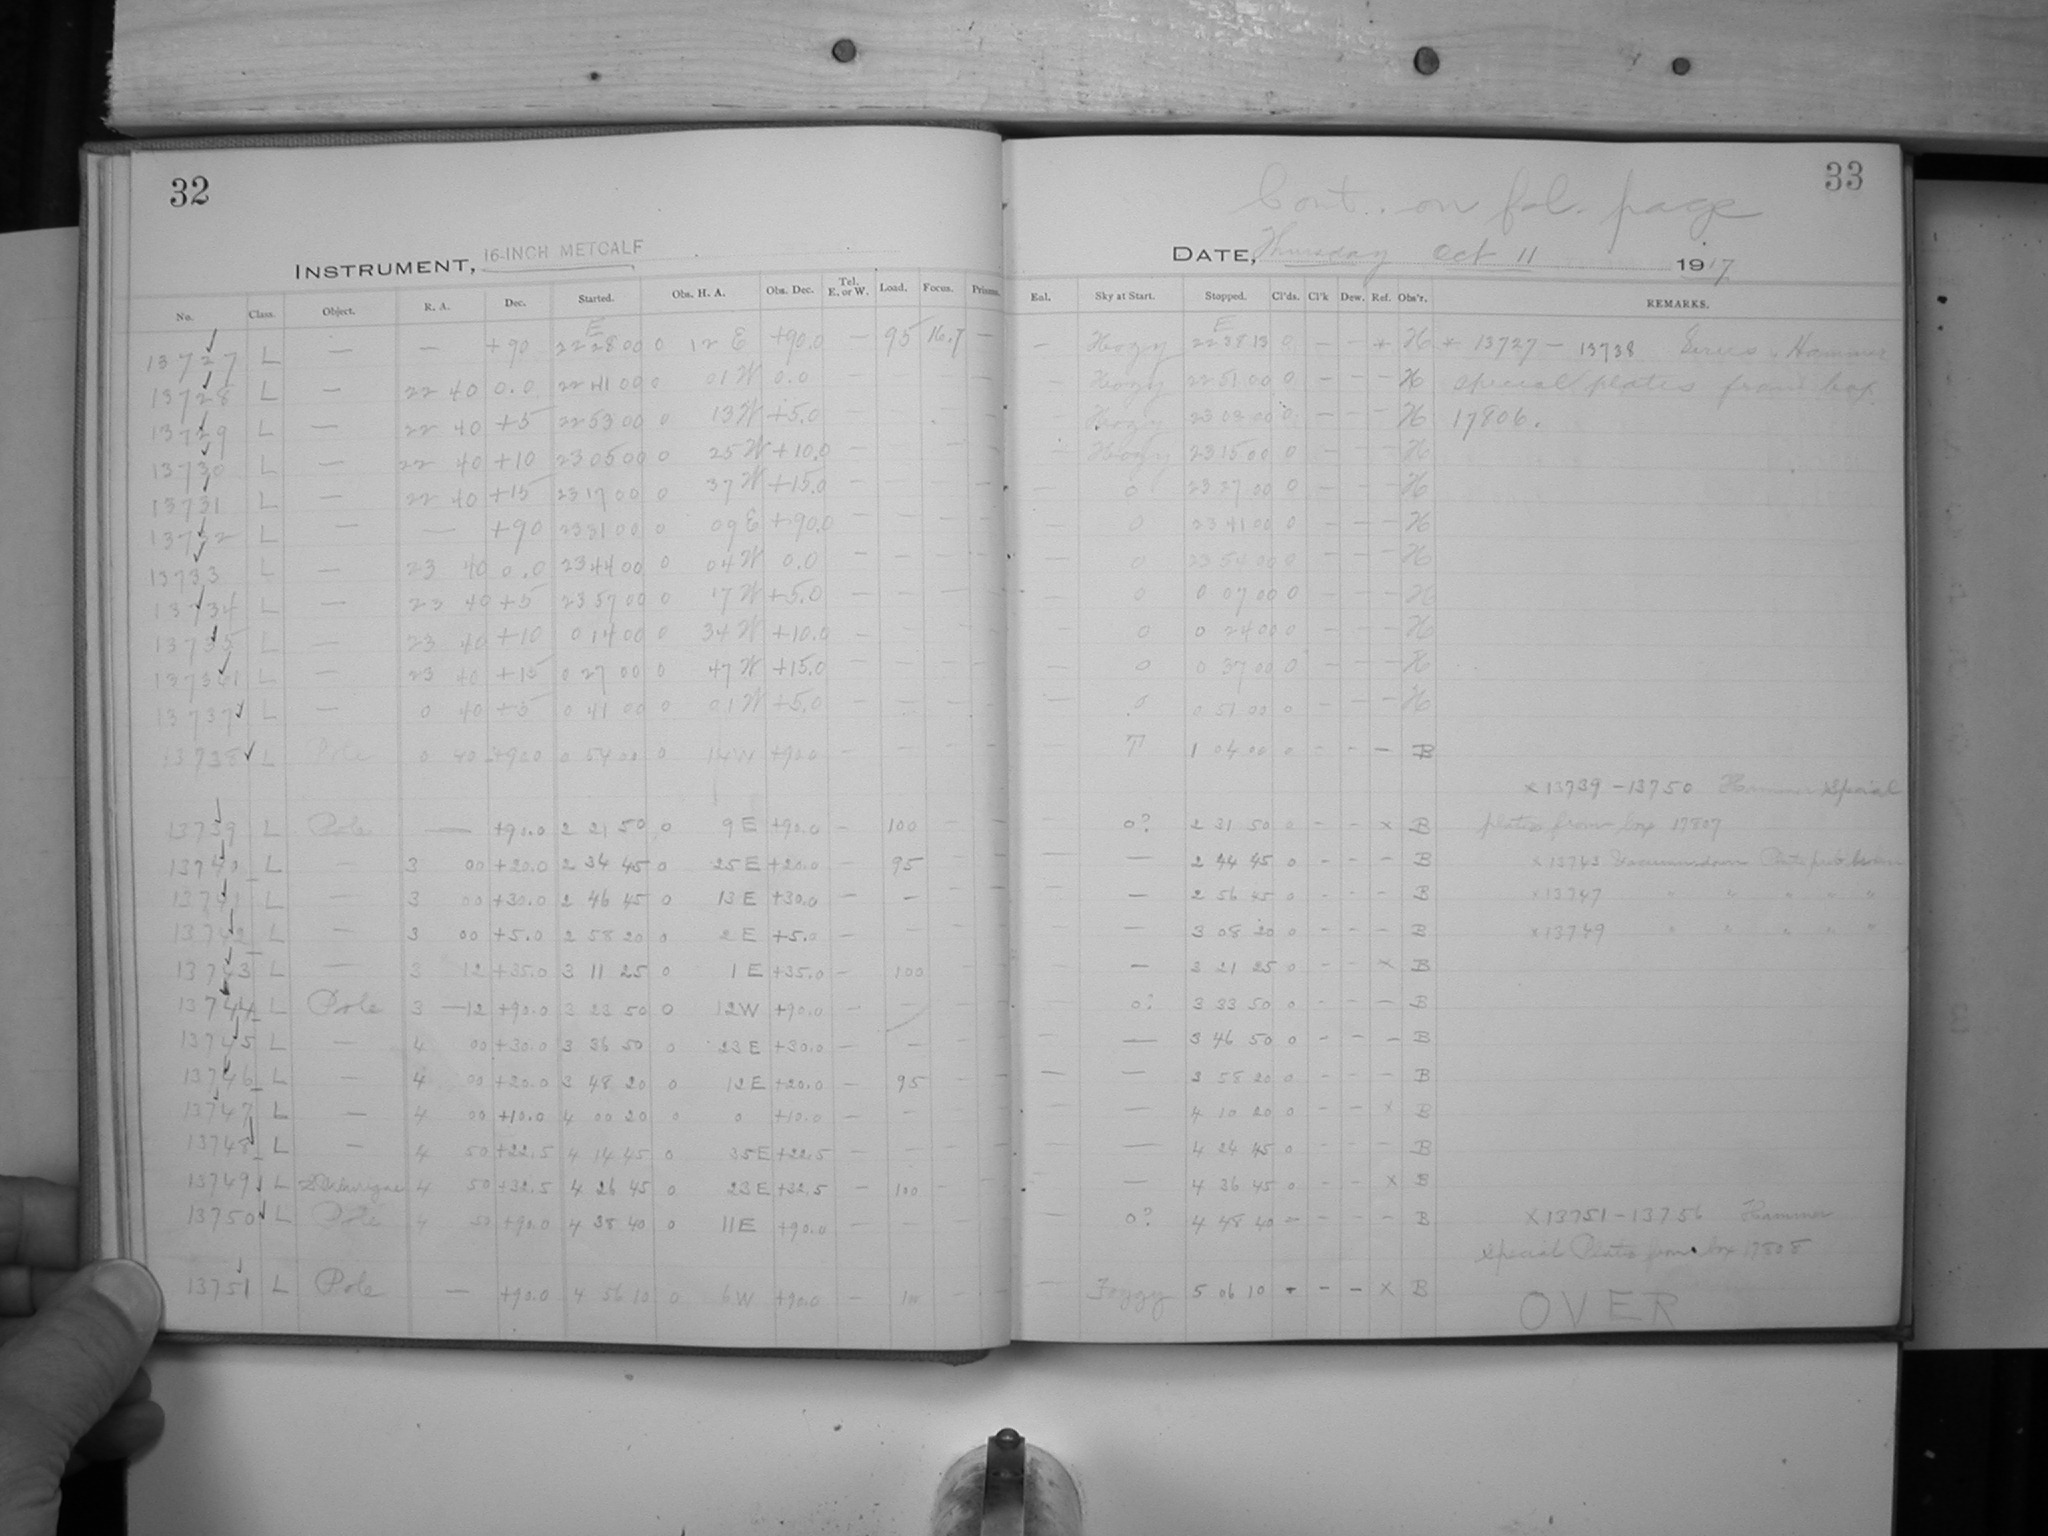 32
33
Cont. on fol. page
INSTRUMENT, 16-INCH METCALF
DATE, Thursday Oct 11 1917
No. Class. Object. R. A. Dec. Started. Obs. H. A. Obs. Dec. Tel. E. or W. Load. Focus. Prisms. Eal. Sky at Start. Stopped. Cl'ds. Cl'k Dew. Ref. Obs'r. REMARKS.
E E
13727 L — — +90 22 28 00 0 12 E +90.0 — 95 16.7 — — Hazy 22 38 13 0 — — * H * 13727 — 13738
13728 L — 22 40 0.0 22 41 00 0 01 W 0.0 — Hazy 22 51 00 0 — — — H special plates from box
13729 L — 22 40 +5 22 53 00 0 13 W +5.0 — Hazy 23 03 00 0 — — — H 17806.
13730 L — 22 40 +10 23 05 00 0 25 W +10.0 — — — — — Hazy 23 15 00 0 — — — H
13731 L — 22 40 +15 23 17 00 0 37 W +15.0 — — — — — 0 23 27 00 0 — — — H
13732 L — — +90 23 31 00 0 09 E +90.0 — — — — — 0 23 41 00 0 — — — H
13733 L — 23 40 0.0 23 44 00 0 04 W 0.0 — — — — — 0 23 54 00 0 — — — H
13734 L — 23 40 +5 23 57 00 0 17 W +5.0 — — — — — 0 0 07 00 0 — — — H
13735 L — 23 40 +10 0 14 00 0 34 W +10.0 — — — — — 0 0 24 00 0 — — — H
13736 L — 23 40 +15 0 27 00 0 47 W +15.0 — — — — — 0 0 37 00 0 — — — H
13737 L — 0 40 +5 0 41 00 0 01 W +5.0 — — — — — 0 0 51 00 0 — — — H
13738 L Pole 0 40 +90.0 0 54 00 0 14 W +90.0 — — — — — 1 04 00 0 — — — B
x 13739 – 13750 Hammer Special
13739 L Pole — +90.0 2 21 50 0 9 E +90.0 — 100 — — — 0? 2 31 50 0 — — x B plates from box 17807
13740 L — 3 00 +20.0 2 34 45 0 25 E +20.0 — 95 — — — — 2 44 45 0 — — — B x 13743 Plate
13741 L — 3 00 +30.0 2 46 45 0 13 E +30.0 — — — — — — 2 56 45 0 — — — B x 13747 " " " " "
13742 L — 3 00 +5.0 2 58 20 0 2 E +5.0 — — — — — — 3 08 20 0 — — — B x 13749 " " " " "
13743 L — 3 12 +35.0 3 11 25 0 1 E +35.0 — 100 — — — — 3 21 25 0 — — x B
13744 L Pole 3 — 12 +90.0 3 23 50 0 12 W +90.0 — — — — — 0? 3 33 50 0 — — — B
13745 L — 4 00 +30.0 3 36 50 0 23 E +30.0 — — — — — — 3 46 50 0 — — — B
13746 L — 4 00 +20.0 3 48 20 0 12 E +20.0 — 95 — — — — 3 58 20 0 — — — B
13747 L — 4 00 +10.0 4 00 20 0 0 +10.0 — — — — — — 4 10 20 0 — — x B
13748 L — 4 50 +22.5 4 14 45 0 35 E +22.5 — — — — — — 4 24 45 0 — — — B
13749 L 4 50 +32.5 4 26 45 0 23 E +32.5 — 100 — — — — 4 36 45 0 — — x B
13750 L Pole 4 50 +90.0 4 38 40 0 11 E +90.0 — — — — — 0? 4 48 40 — — — — B x 13751 – 13756 Hammer
special Plates from box 17808
13751 L Pole — +90.0 4 56 10 0 6 W +90.0 — — — — Foggy 5 06 10 — — — x B
OVER